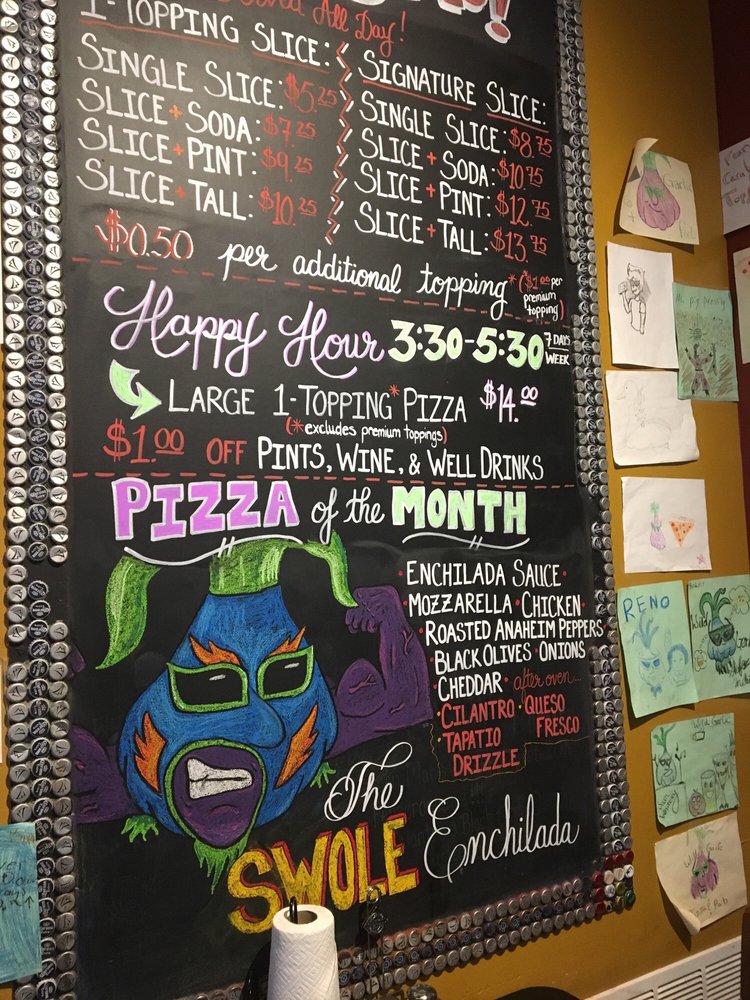 All Day!
1-TOPPING SLICE:
SINGLE SLICE: $5.25
SLICE + SODA: $7.25
SLICE + PINT: $9.25
SLICE + TALL: $10.25
SIGNATURE SLICE:
SINGLE SLICE: $8.75
SLICE + SODA: $10.75
SLICE + PINT: $12.75
SLICE + TALL: $13.75
$0.50 per additional topping* ($1.00 per
premium
topping)
Happy Hour 3:30-5:30 7 DAYS
WEEK
LARGE 1-TOPPING* PIZZA $14.00
(*excludes premium toppings)
$1.00 OFF PINTS, WINE, & WELL DRINKS
PIZZA of the MONTH
• ENCHILADA SAUCE •
• MOZZARELLA • CHICKEN •
• ROASTED ANAHEIM PEPPERS •
• BLACK OLIVES • ONIONS
CHEDDAR • after oven...
• CILANTRO • QUESO
FRESCO
• TAPATIO
DRIZZLE
The
SWOLE Enchilada
Garlic
RENO
Wild Garlic